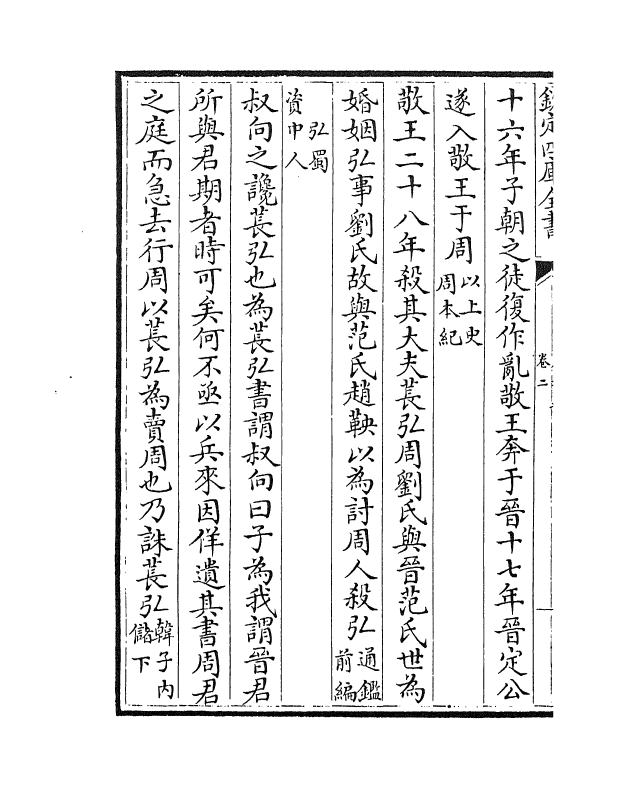 欽定四庫全書
卷二
十六年子朝之徒復作亂敬王奔于晉十七年晉定公
遂入敬王于周以上史周本紀
敬王二十八年殺其大夫萇弘周劉氏與晉范氏世為
婚姻弘事劉氏故與范氏趙鞅以為討周人殺弘通鑑前編
弘蜀資中人
叔向之讒萇弘也為萇弘書謂叔向曰子為我謂晉君
所與君期者時可矣何不亟以兵來因佯遺其書周君
之庭而急去行周以萇弘為賣周也乃誅萇弘韓子内儲下